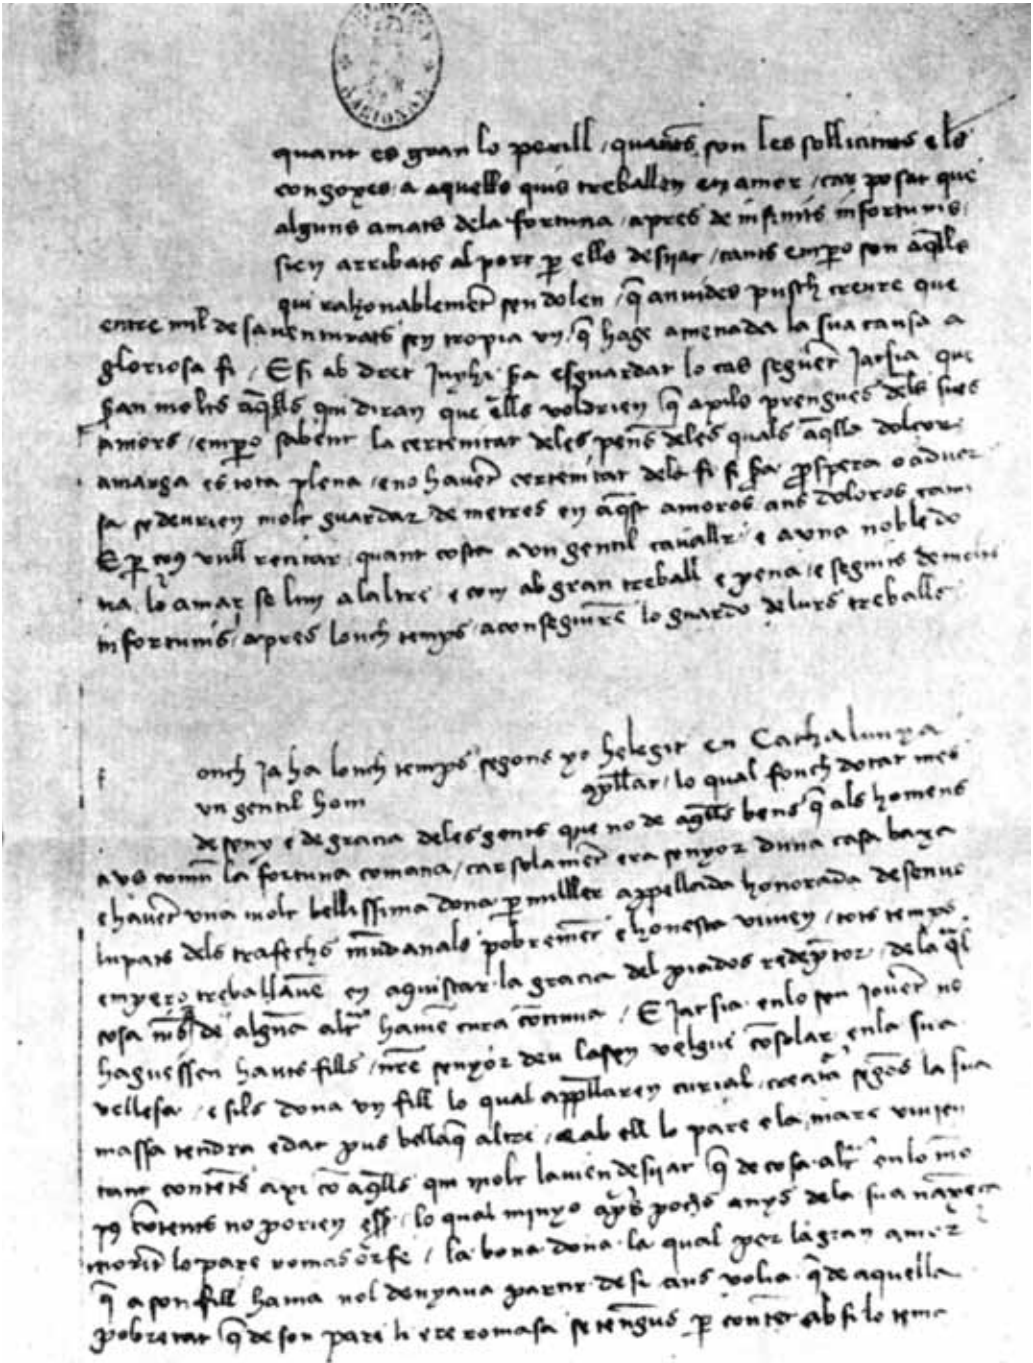 quant es gran lo perill / quantes son les sollicituts e les
congoxes a aquells quis treballen en amor / car posat que
alguns amats dela fortuna / apres de infinits infortunis
sien arribats al port per ells desijat / tants empero son aqlls
qui rahonablement sen dolen / q̄ anuides pusch creure que
entre mil desauenturats sen tropia vn / q̄ hage amenada la sua causa a
gloriosa fi / E si ab dret juyhi sa esguardat lo cas seguent Jatsia que
san molts aq̄lls qui diran que ells voldrien q̄ axi los prengues dels sues
amors / empero sabent la certenitat deles penes deles quals aq̄lla dolçor
amarga es tota plena / e no hauent certenitat dela fi si sa prospera o aduer
sa se deurien molt guardar de metres en aq̄st amoros ans doloros cami
E per ço vull recitar quant costa a vn gentil caualler e a vna noble do
na lo amar se lun al altre e com ab gran treball e pena / e seguits de molts
infortunis / apres lonch temps aconseguiren lo guardo de lurs treballs
f onch Ja ha lonch temps segons yo he legit en Cathalunya
vn gentil hom apellat / lo qual fonch dotat mes
de seny e de gracia deles gents que no de aq̄lls bens q̄ als homens
aus comu la fortuna comana / car solament era senyor duna casa baxa
e hauent vna molt bellissima dona per muller appellada honorada desenuo
lupats dels trafechs mundanals pobrement e honesta viuien / tots temps
empero treballauen en aquistar la gracia del piados redemptor / dela q̄l
cosa mes de alguna altra hauien cura continua / E Jatsia en lo seu jouent no
haguessen hauts fills / nr̄e senyor deu lasseu volgue consolar en la sua
vellesa / e sils dona vn fill lo qual appellaren curial / creatura segons la sua
massa tendra edat pus bella q̄ altre / e ab ell lo pare e la mare viuien
tant contents axi com aq̄lls qui molt lauien desijat q̄ de cosa altra en lo mo
pus contents no porien esser / lo qual minyo apres pochs anys dela sua naxença
morint lo pare romas orfe / la bona dona la qual per la gran amor
q̄ a son fill hauia nol denyaua partir de si ans volia q̄ de aquella
pobretat q̄ de son pare li ere romasa se tengues per content ab si lo tenia